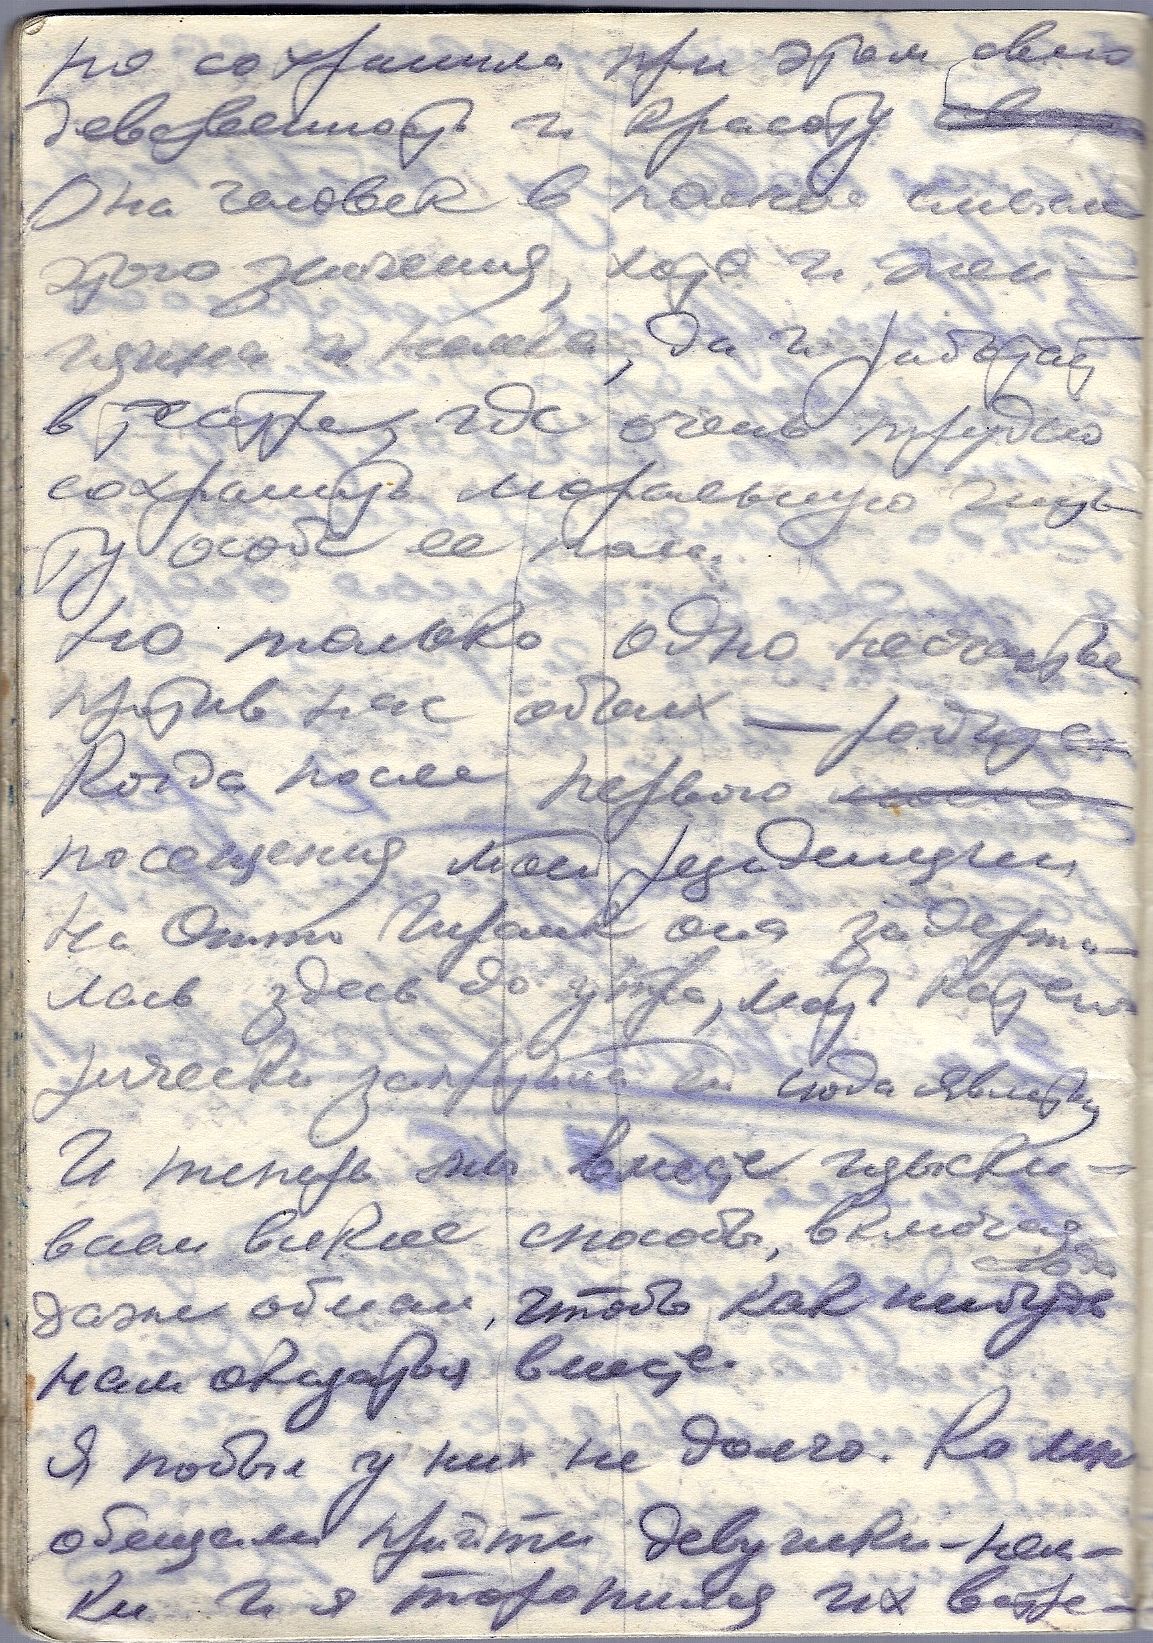 но сохранила при этом свою
девственность и красоту
Она человек в полном смысле
этого значения, хотя и жен-
щина и немка, да и работает
в театре, где очень трудно
сохранить моральную чисто-
ту особе ее пола.
Но только одно несчастье
против нас обоих — родители
Когда после первого
посещения моей резиденции
на Отто Франк она задержа-
лась здесь до утра, мать катего-
рически запретила ей сюда являться
И теперь мы вместе изыски-
ваем всякие способы, включая сюда
даже обман, чтоб как нибудь
нам оказаться вместе.
Я побыл у них не долго. Ко мне
обещали прийти девушки-нем-
ки и я торопился их встре-